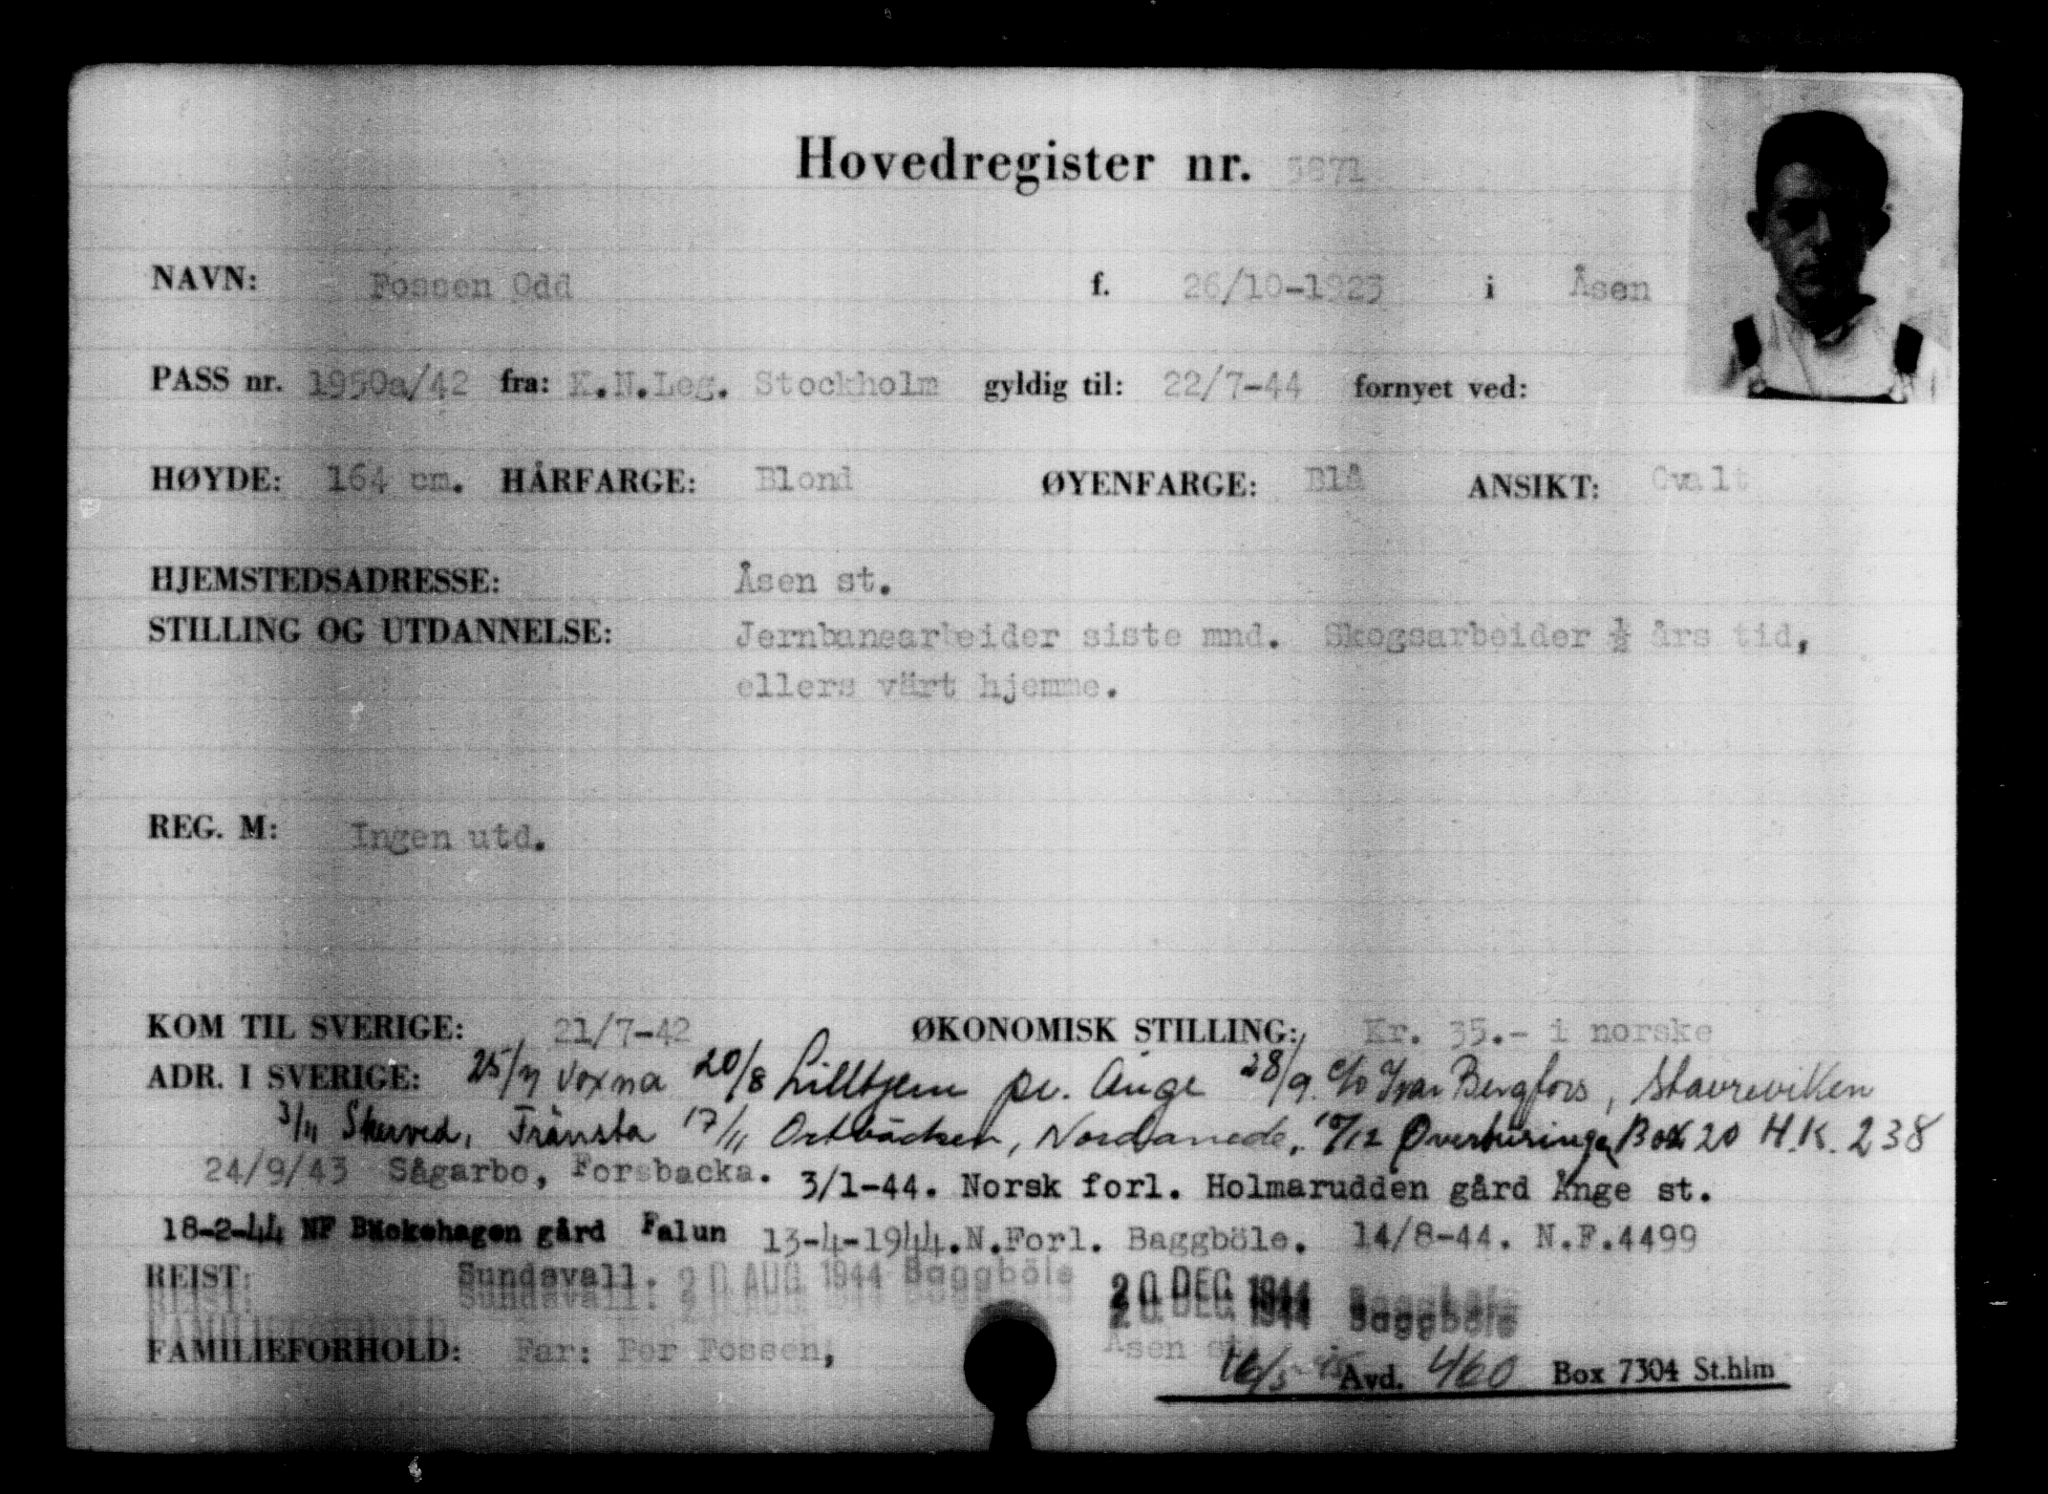 Hovedregister nr. 3871
NAVN: Fossen Odd f. 26/10-1923 i Åsen
PASS nr. 1950a/42 fra: K.N.Leg. Stockholm gyldig til: 22/7-44 fornyet ved:
HØYDE: 164 cm. HÅRFARGE: Blond ØYENFARGE: Blå ANSIKT: Ovalt
HJEMSTEDSADRESSE: Åsen st.
STILLING OG UTDANNELSE: Jernbanearbeider siste mnd. Skogsarbeider ½ års tid,
ellers värt hjemme.
REG. M: Ingen utd.
KOM TIL SVERIGE: 21/7-42 ØKONOMISK STILLING: Kr. 35.- i norske
ADR. I SVERIGE: 25/7 Voxna 20/8 Lilltjern pr. Ånge 28/9. c/o Ivar Bergfors, Stavreviken
3/11 Skerved, Fränsta 17/11 Ortbäcken, Nordanede, 10/12 Överturingen Box 20 H.K. 238
24/9/43 Sågarbo, Forsbacka. 3/1-44. Norsk forl. Holmarudden gård Ånge st.
18-2-44 NF Backehagen gård Falun 13-4-1944.N.Forl. Baggböle. 14/8-44. N.F.4499
REIST: Sundsvall. 20 AUG 1944 Baggböle 20 DEC 1944 Baggböle
FAMILIEFORHOLD: Far: Per Fossen, Åsen st.
16/5-45 Avd. 460 Box 7304 St.hlm